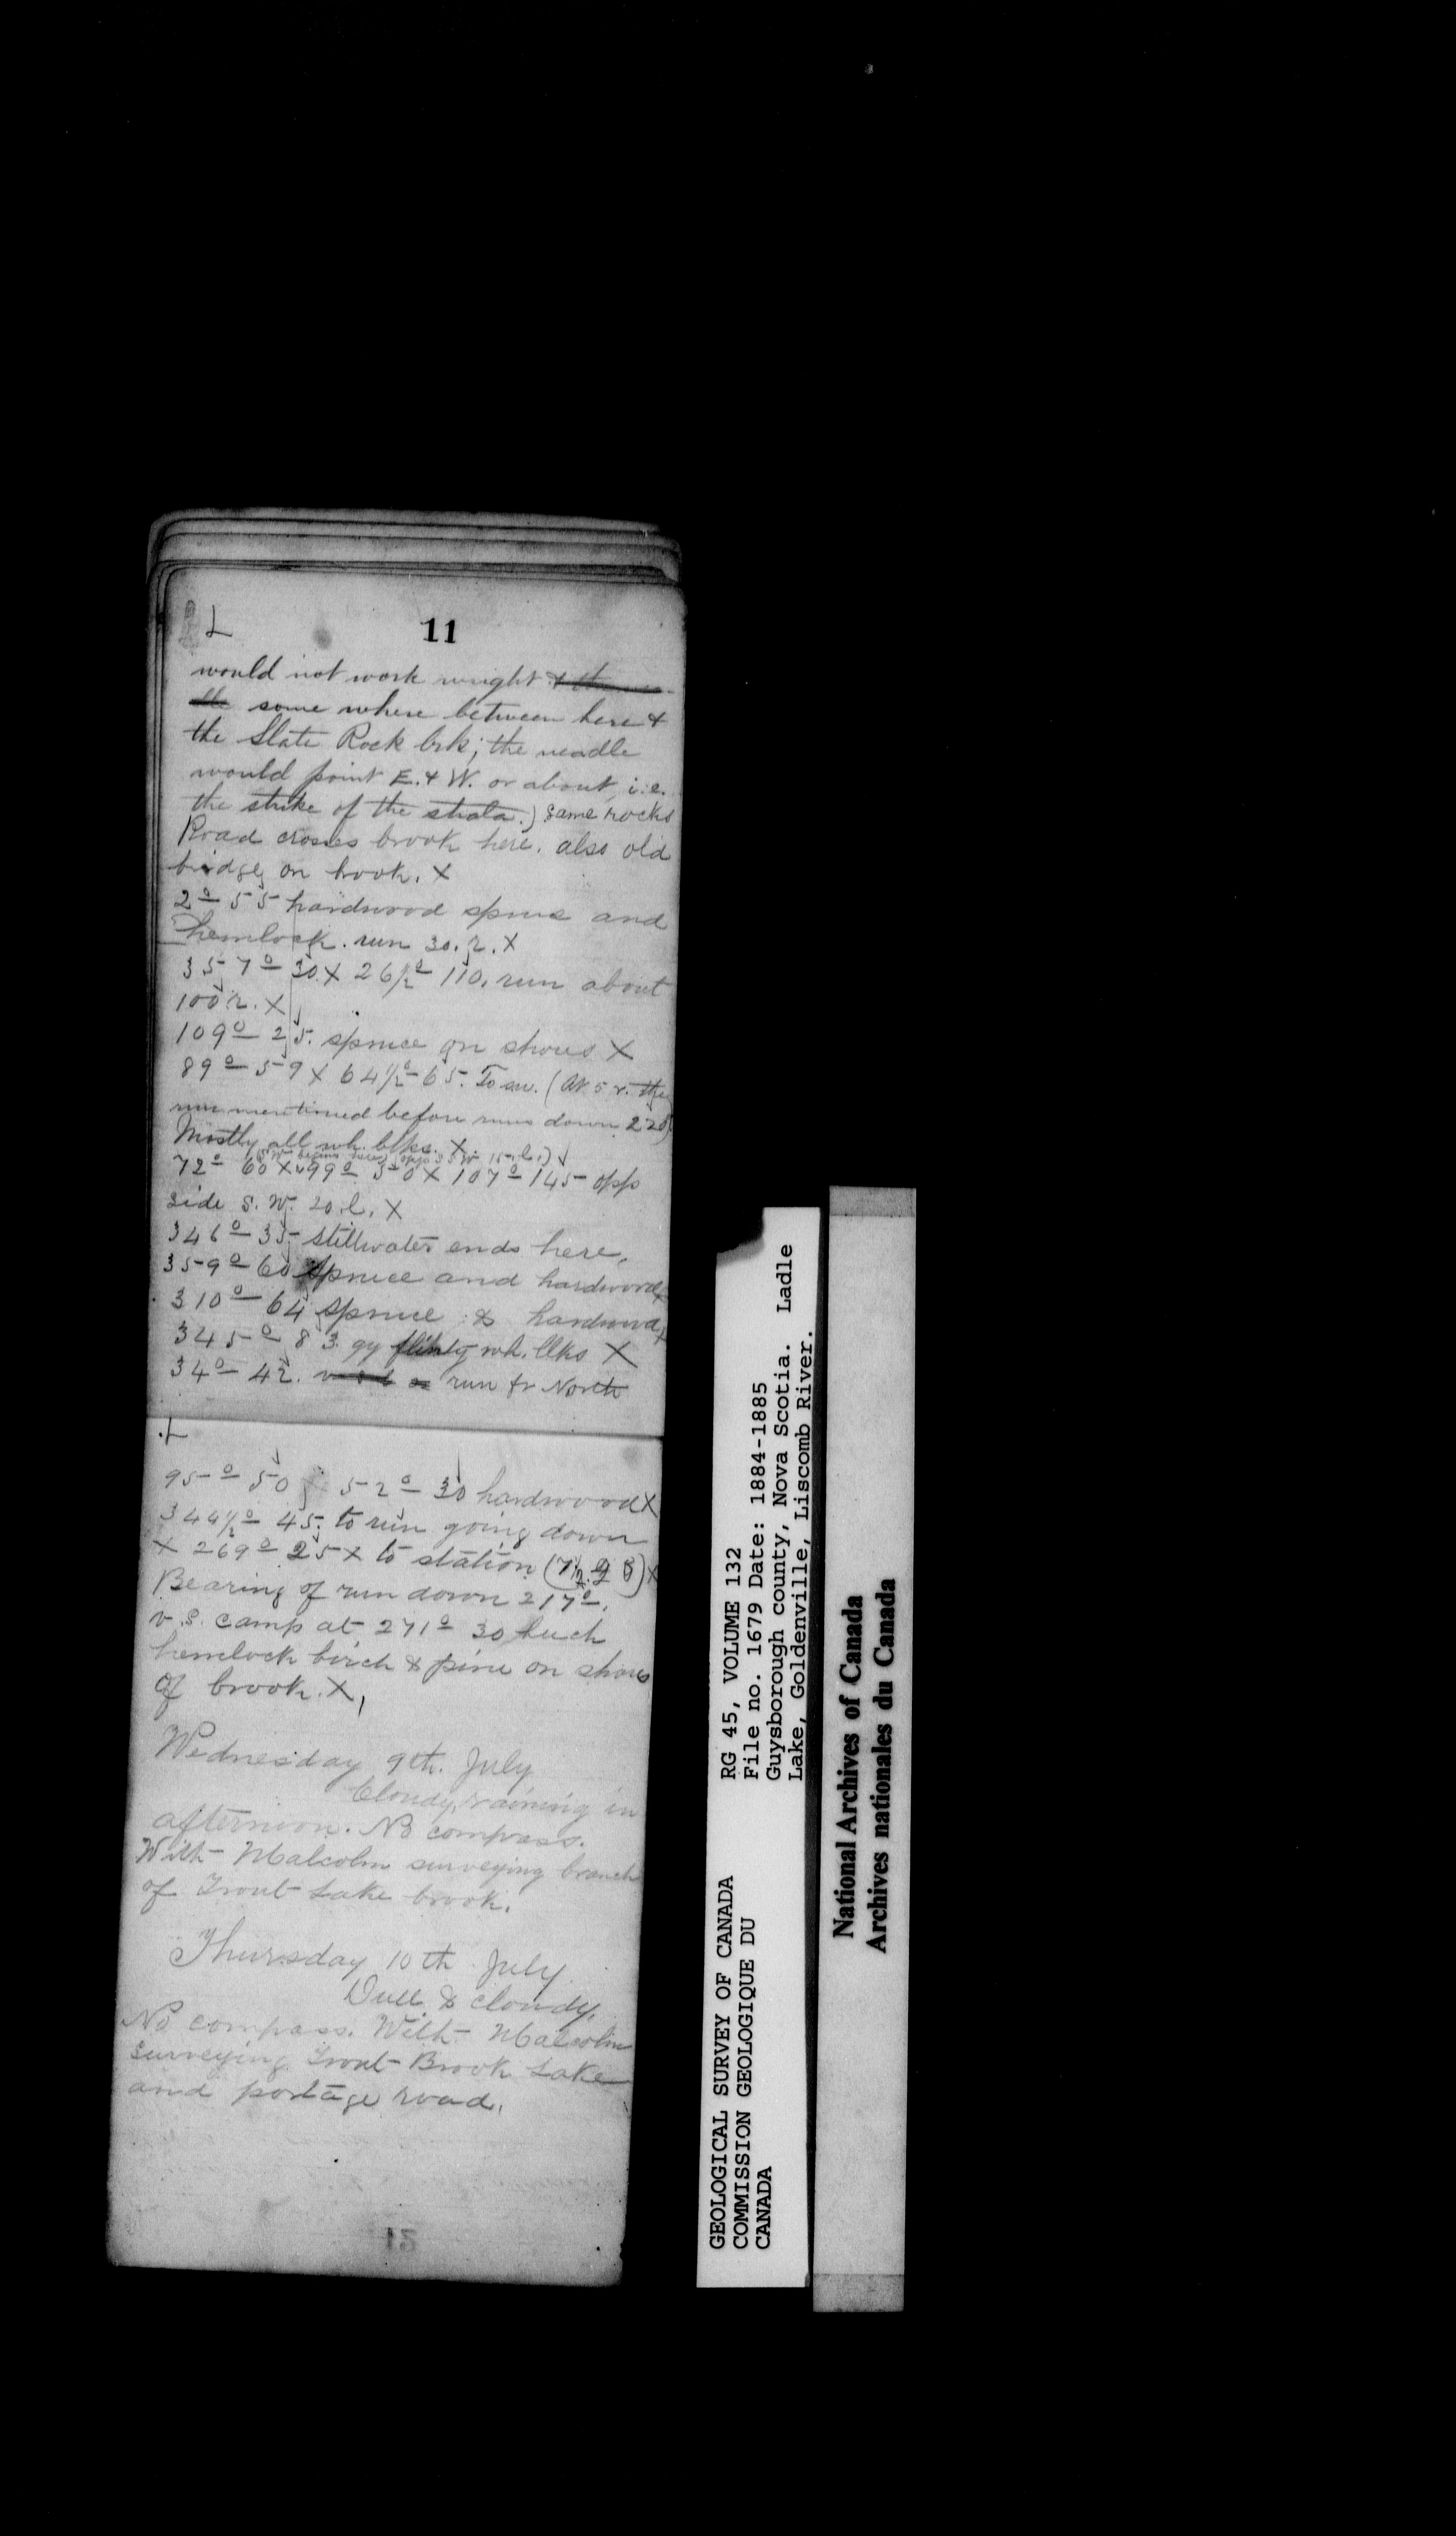 L
11
would not work wright
some where between here &
the Slate Rock brk; the neadle
would point E. & W. or about, i.e.
the strike of the strata.) same rocks
Road crosses brook here. also old
bridge on brook. X
2° 55 hardwood spruce and
hemlock. run 30. r. X
357° 30 X 26½° 110. run about
100 r. X
109° 25. spruce on shores X
89° 59 X 64½° 65. To sw. (At 5 r. the
run mentioned before runs down 220°)
Mostly all wh. blks. X
(S.W. begins here) (opp S.W. 15 l.)
72° 60 X 99° 50 X 107° 145 opp
side S. W. 20. l. X
346° 35 stillwater ends here,
359° 60 spruce and hardwood X
310° 64 spruce & hardwood X
345° 83. gy flinty wh. blks X
34° 42. run fr North
L
95° 50 52° 30 hardwood X
344½° 45. to run going down
X 269° 25 X to station X
Bearing of run down 217°.
v. S. camp at 271° 30
hemlock birch & pine on shores
of brook. X
Wednesday 9th. July
Cloudy, raining in
afternoon. No compass.
With Malcolm surveying branch
of Trout Lake brook.
Thursday 10th July
Dull & cloudy.
No compass. With Malcolm
surveying Trout Brook Lake
and portage road.
12
GEOLOGICAL SURVEY OF CANADA
COMMISSION GEOLOGIQUE DU
CANADA
RG 45, VOLUME 132
File no. 1679 Date: 1884-1885
Guysborough county, Nova Scotia. Ladle
Lake, Goldenville, Liscomb River.
National Archives of Canada
Archives nationales du Canada